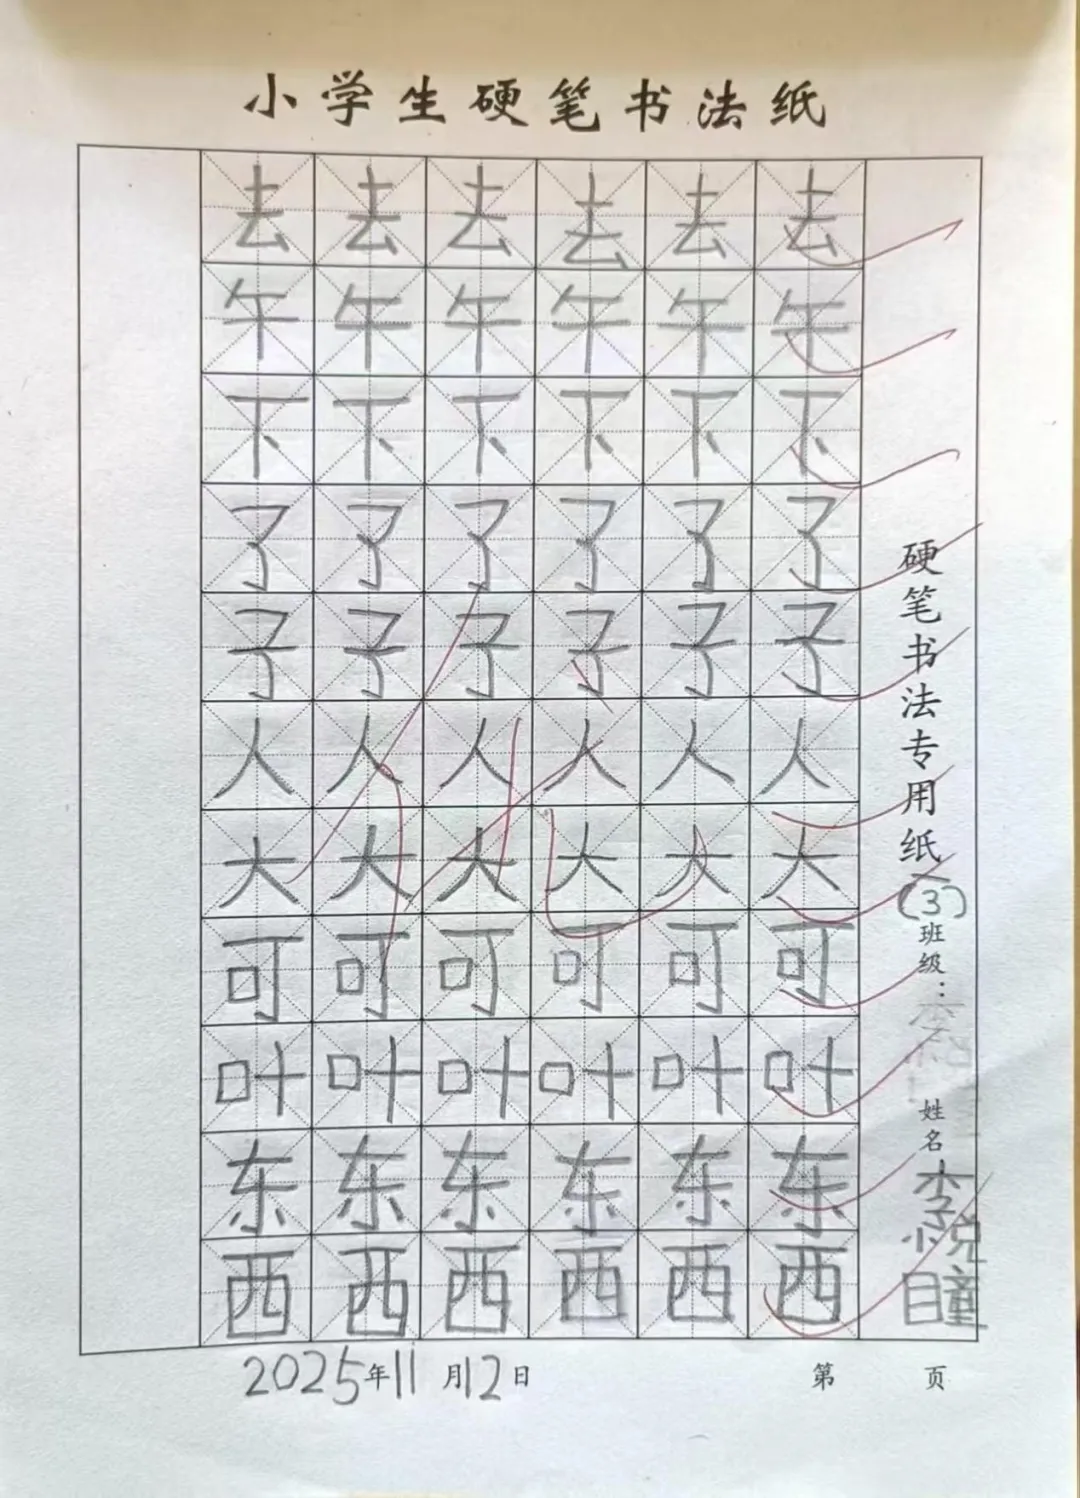 小学生硬笔书法纸
去去去去去去
午午午午午午
下下下下下下
了了了了了了
子子子子子子
人人人人人人
大大大大大大
可可可可可可
叶叶叶叶叶叶
东东东东东东
西西西西西西
2025年11月12日
第 页
硬笔书法专用纸
(3)班级:
姓名 李悦瞳